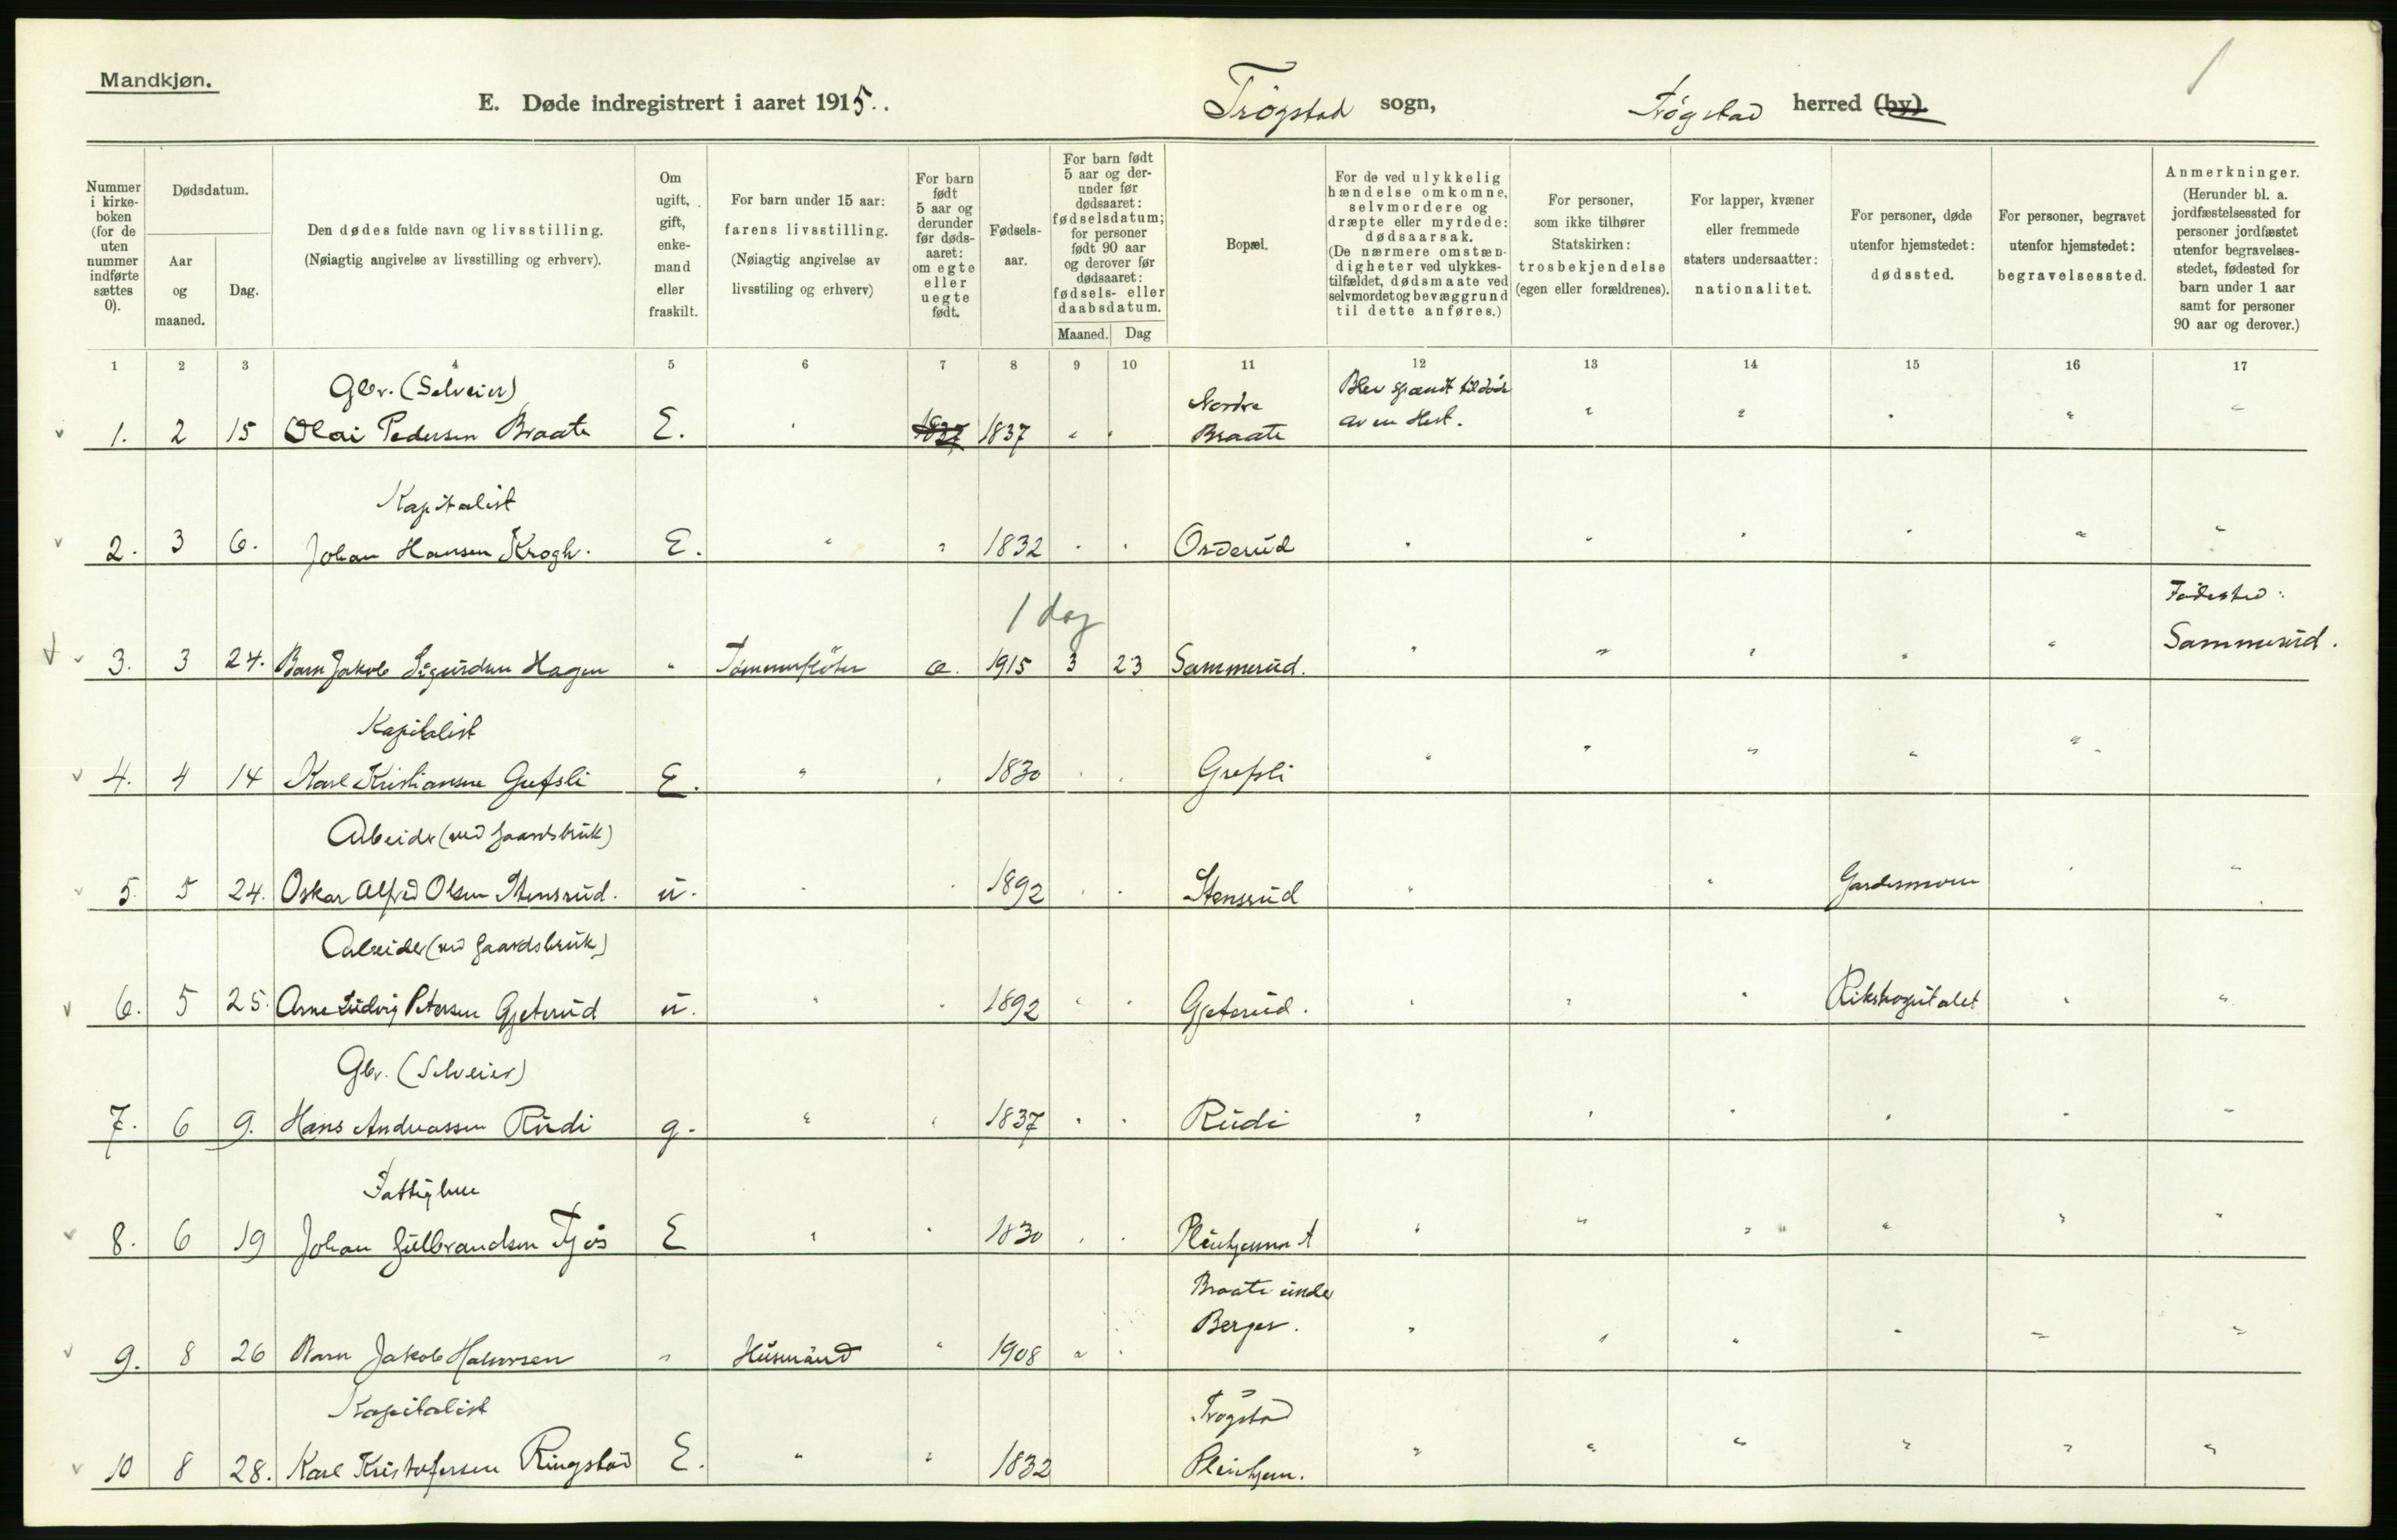 Mandkjøn.
E. Døde indregistrert i aaret 1915..
Trøgstad sogn,
Trøgstad herred (by).
1
Nummer i kirke-boken (for de uten nummer indførte sættes 0).
Dødsdatum.
Aar og maaned.
Dag.
Den dødes fulde navn og livsstilling.
(Nøiagtig angivelse av livsstilling og erhverv).
Om ugift, gift, enke-mand eller fraskilt.
For barn under 15 aar: farens livsstilling.
(Nøiagtig angivelse av livsstiling og erhverv)
For barn født 5 aar og derunder før døds-aaret: om egte eller uegte født.
Fødsels-aar.
For barn født 5 aar og der-under før dødsaaret: fødselsdatum; for personer født 90 aar og derover før dødsaaret: fødsels- eller daabsdatum.
Maaned. Dag
Bopæl.
For de ved ulykkelig hændelse omkomne, selvmordere og dræpte eller myrdede: dødsaarsak.
(De nærmere omstæn-digheter ved ulykkes-tilfældet, dødsmaate ved selvmordet og bevæggrund til dette anføres.)
For personer, som ikke tilhører Statskirken: trosbekjendelse (egen eller forældrenes).
For lapper, kvæner eller fremmede staters undersaatter: nationalitet.
For personer, døde utenfor hjemstedet: dødssted.
For personer, begravet utenfor hjemstedet: begravelsessted.
Anmerkninger.
(Herunder bl. a. jordfæstelsessted for personer jordfæstet utenfor begravelses-stedet, fødested for barn under 1 aar samt for personer 90 aar og derover.)
1 2 3 4 5 6 7 8 9 10 11 12 13 14 15 16 17
Gbr. (Selveier) Nordre Blev spændt tildøde
1. 2 15 Olai Pedersen Braate E. " 1837 1837 " " Braate av en Hest. " " " " "
Kapitalist
2. 3 6. Johan Hansen Krogh. E. " " 1832 " " Orderud " " " " " "
1 dag Fødested:
3. 3 24. Barn Jakob Sigurdsen Hagen " Tømmerfløter e. 1915 3 23 Sammerud. " " " " " Sammerud.
Kapitalist
4. 4 14 Karl Kristiansen Grefsli E. " " 1830 " " Grefsli " " " " "
Arbeider (ved Gaardsbruk)
5. 5 24. Oskar Alfred Olsen Stensrud. u. " " 1892 " " Stensrud " " Gardermoen " "
Arbeider (ved Gaardsbruk)
6. 5 25. Arne Ludvig Petersen Gjeterud u. " " 1892 " " Gjeterud. " " " Rikshospitalet " "
Gbr. (Selveier)
7. 6 9. Hans Andreassen Rudi g. " " 1837 " " Rudi " " " " " "
Fattiglem
8. 6 19 Johan Gulbrandsen Fjøs E " " 1830 " " Pleiehjemmet " " " " " "
Braate under
Berger.
9. 8 26 Barn Jakob Halvorsen " Husmand " 1908 " " " " " " " "
Kapitalist Trøgstad
10 8 28. Karl Kristofersen Ringstad E. " " 1832 Pleiehjem. " " " " " "